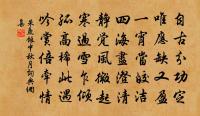 自古分功定
唯應缺又盈
一宵當皎潔
四海盡澄清
靜覺風微起
寒過雪乍傾
孤高稀此遇
吟賞倍牽情
朱慶餘中秋月詞典網